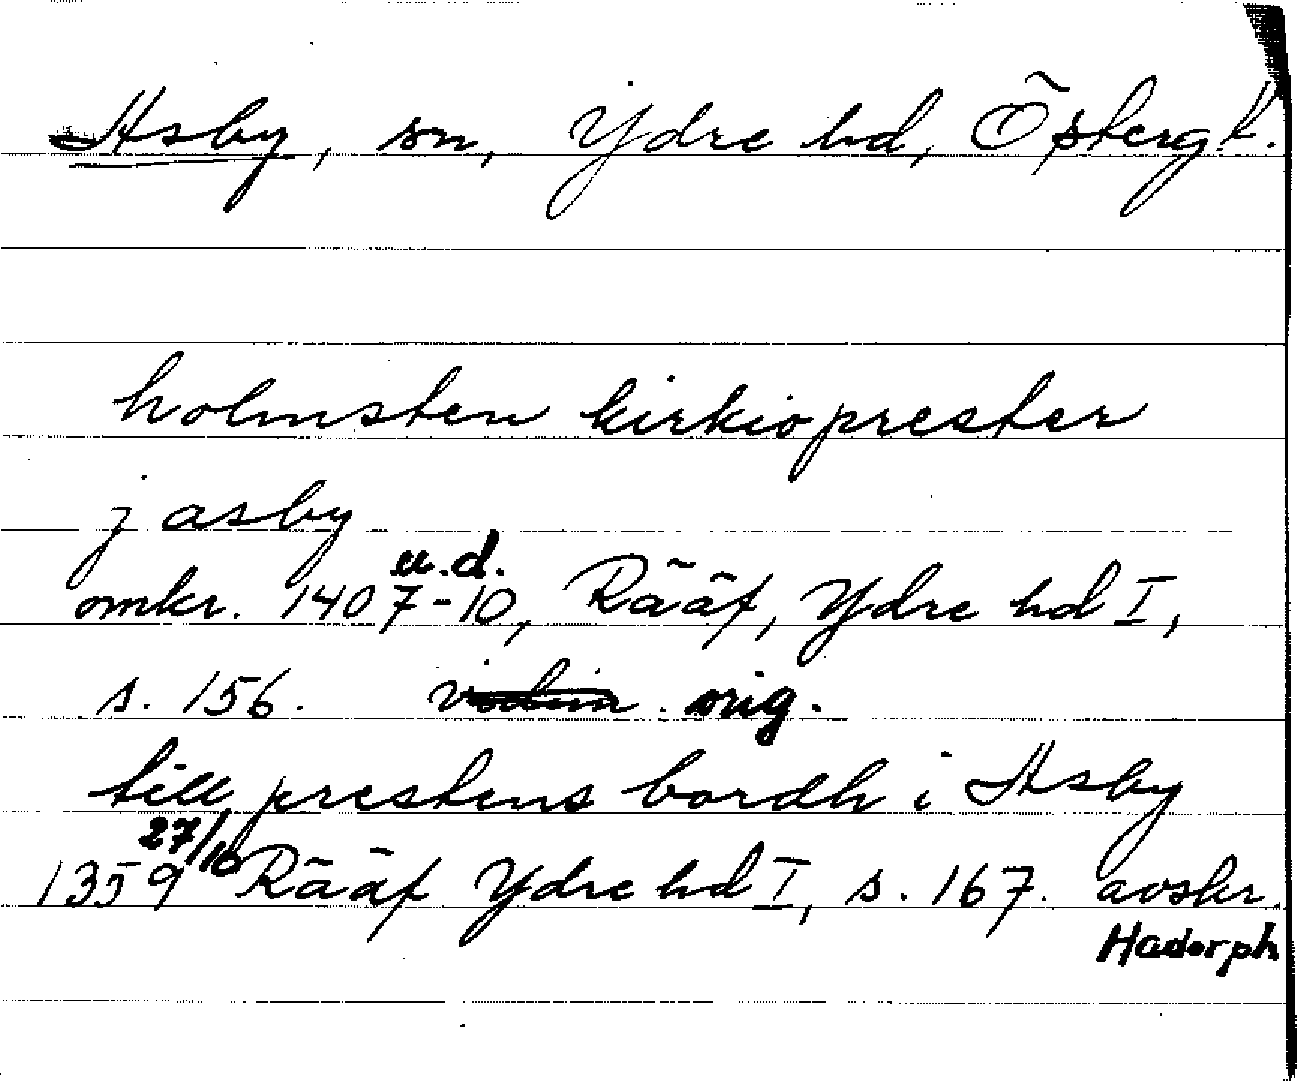 Asby, sn, Ydre hd, Östergk.
holmsten kirkioprester
j asby
u.d.
omkr. 1407-10, Rääf, Ydre hd I,
s. 156. orig.
till prestens bordh i Asby
27/10
1359 Rääf Ydre hd I, s. 167. avskr.
Hadorph